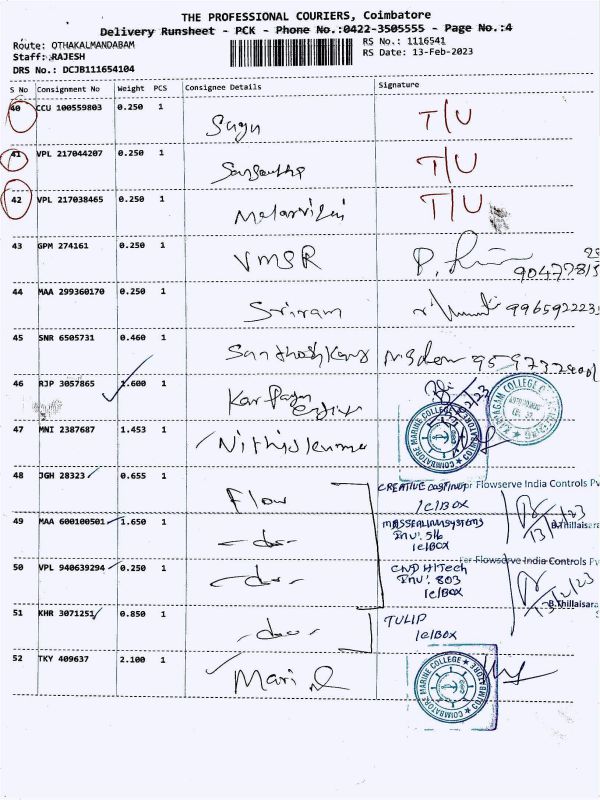 THE PROFESSIONAL COURIERS, Coimbatore
Delivery Runsheet - PCK - Phone No.:0422-3505555 - Page No.:4
Route: OTHAKALMANDABAM RS No.: 1116541
Staff: RAJESH RS Date: 13-Feb-2023
DRS No.: DCJB111654104
S No Consignment No Weight PCS Consignee Details Signature
40 CCU 100559803 0.250 1 T/U
41 VPL 217044207 0.250 1 T/U
42 VPL 217038465 0.250 1 T/U
43 GPM 274161 0.250 1 VMSR
44 MAA 299360170 0.250 1 Sriram
45 SNR 6505731 0.460 1
46 RJP 3057865 1.600 1 Karpagam
47 MNI 2387687 1.453 1 Nithis kumar
COIMBATORE MARINE COLLEGE
48 JGH 28323 0.655 1 Flow CREATIVE casting For Flowserve India Controls Pv
1c/BOX
49 MAA 600100501 1.650 1 -do- Inv: 516
1c/BOX 13/2/23 B.Thillaisara
For Flowserve India Controls Pv
50 VPL 940639294 0.250 1 -do- CND HiTech
Inv: 803
1c/BOX 13/2/23 B.Thillaisara
51 KHR 3071251 0.850 1 -do- TULIP
1c/BOX
52 TKY 409637 2.100 1 Mari
COIMBATORE MARINE COLLEGE